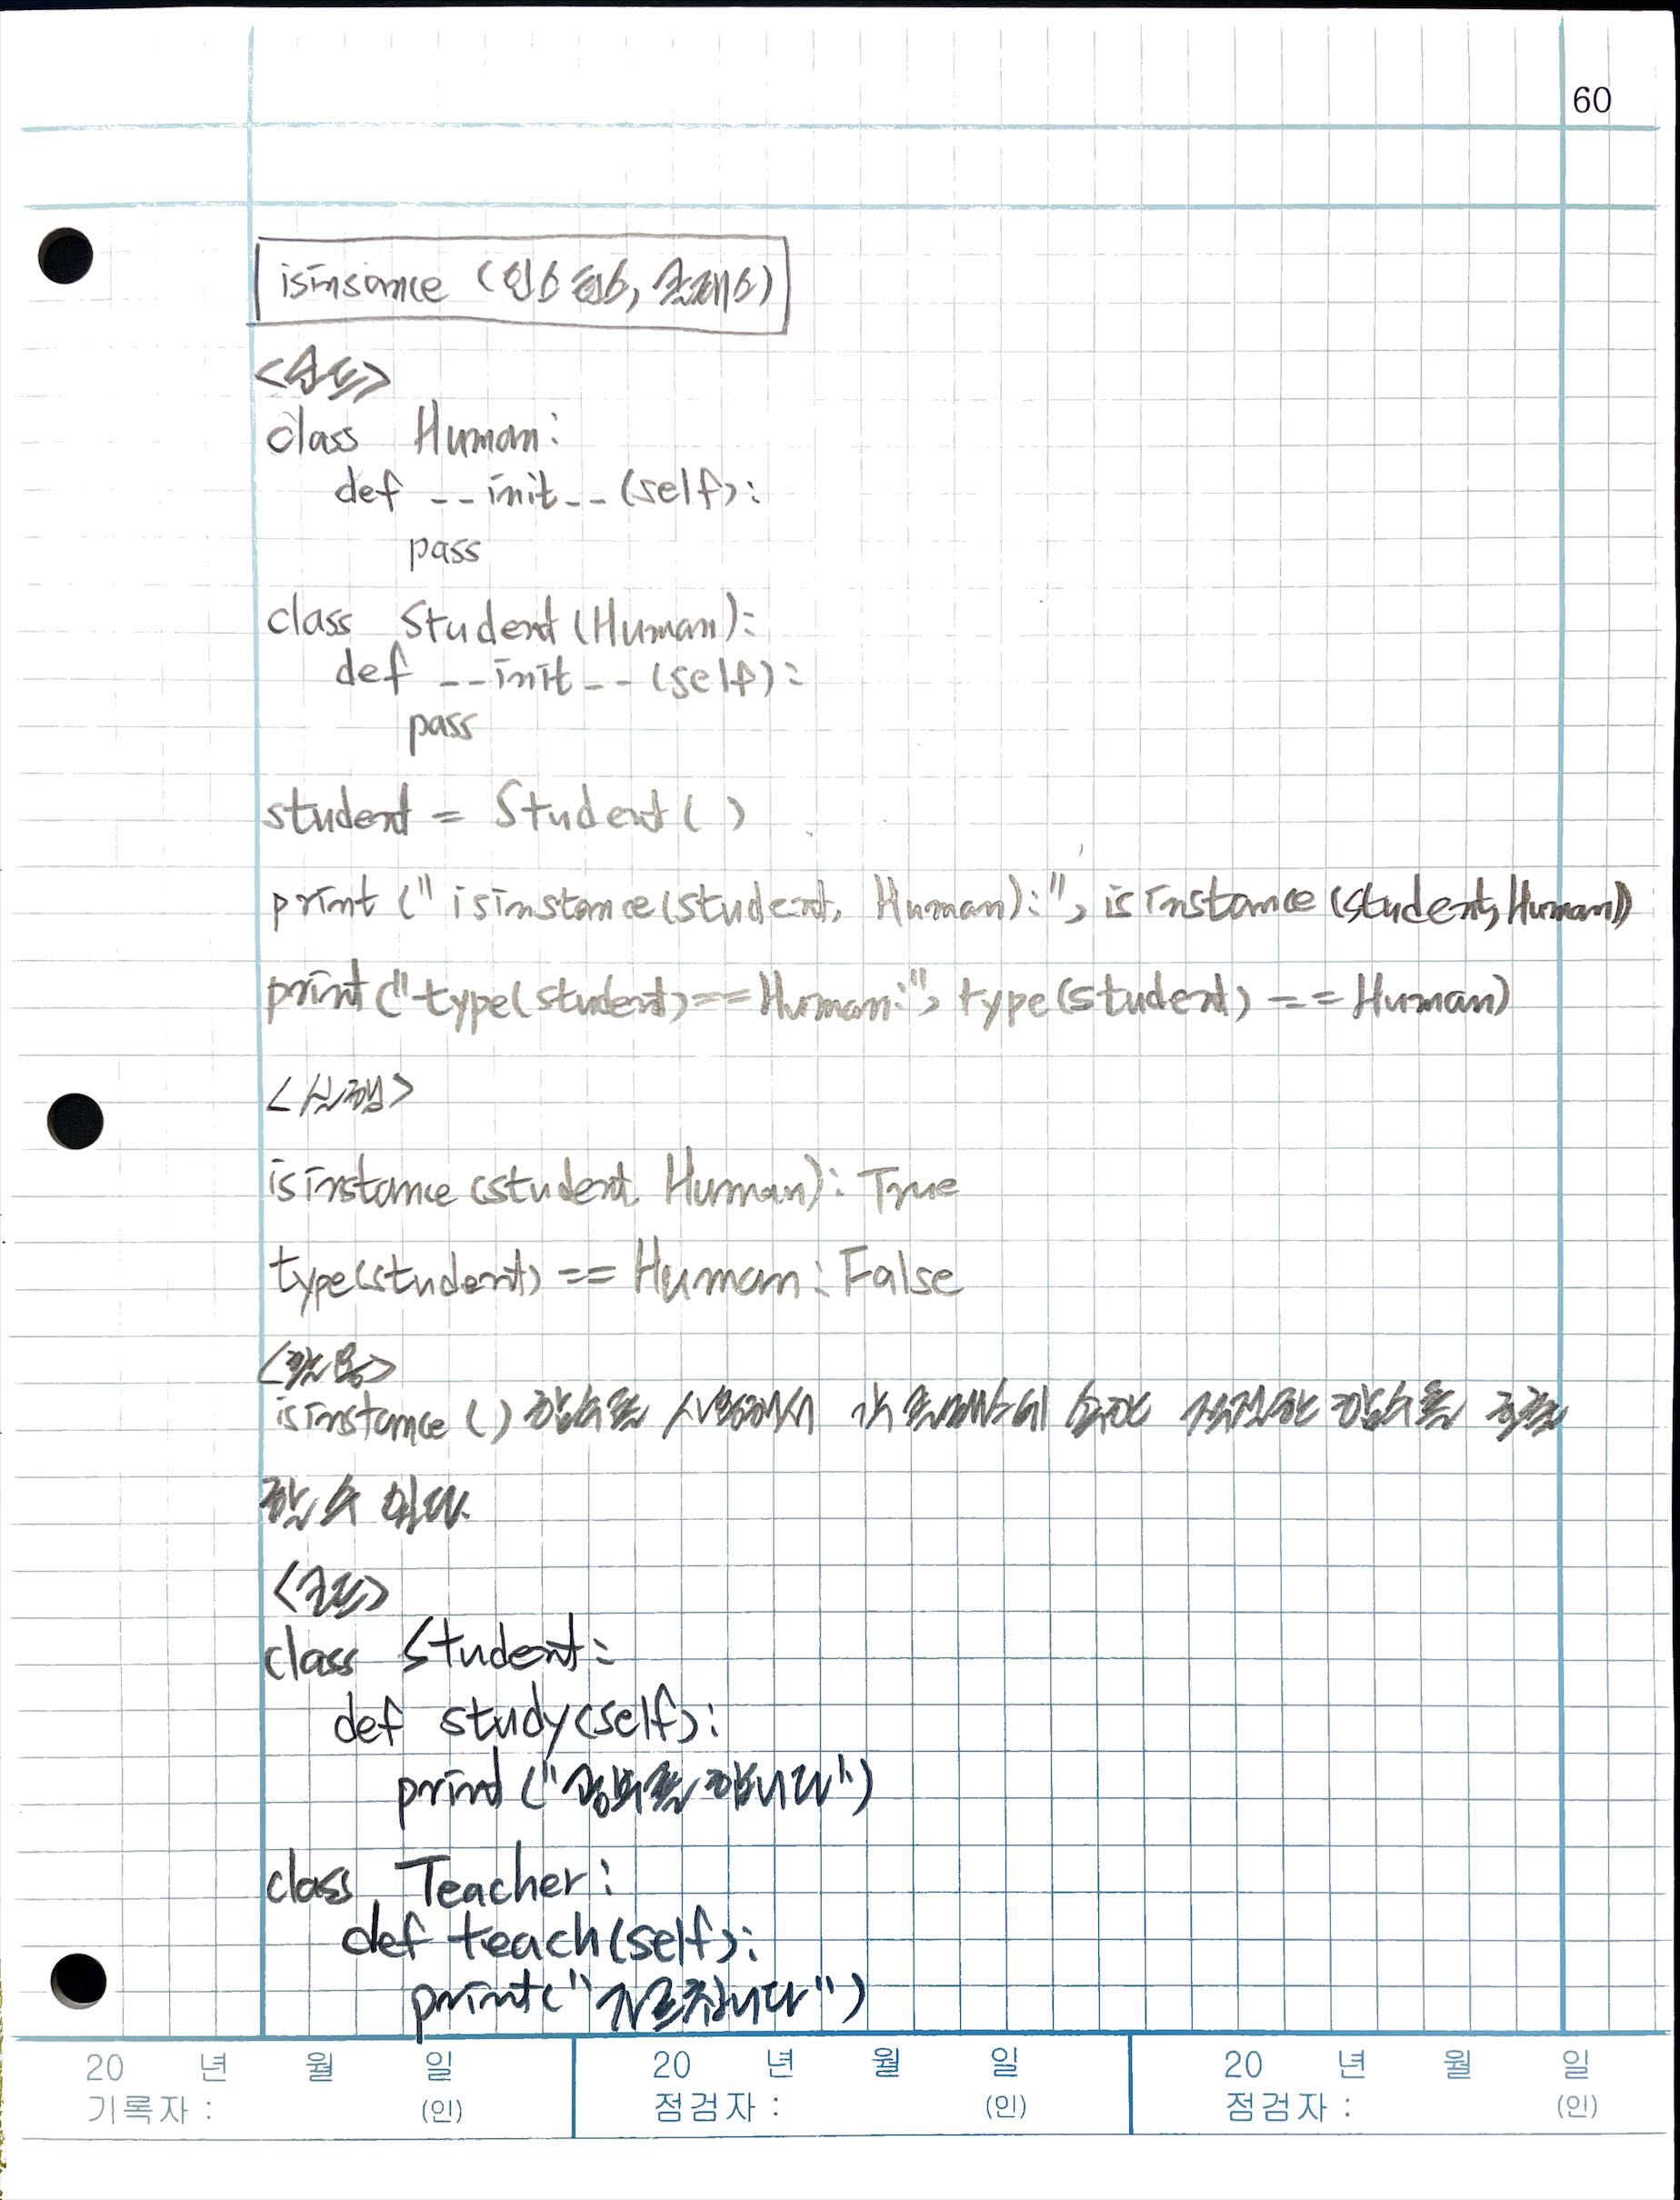 60
isinsance (인스턴스, 클래스)
<순도>
class Human:
def __init__(self):
pass
class Student(Human):
def __init__(self):
pass
student = Student()
print("isinstance(student, Human):", isinstance(student, Human))
print("type(student)==Human:", type(student) == Human)
<실행>
isinstance(student, Human): True
type(student) == Human: False
<활용>
isinstance() 함수를 사용해서 각 클래스에 속하는 적절한 함수를 호출
할 수 있다.
<코드>
class Student:
def study(self):
print("공부를 합니다")
class Teacher:
def teach(self):
print("가르칩니다")
20 년 월 일 20 년 월 일 20 년 월 일
기록자 : (인) 점검자 : (인) 점검자 : (인)